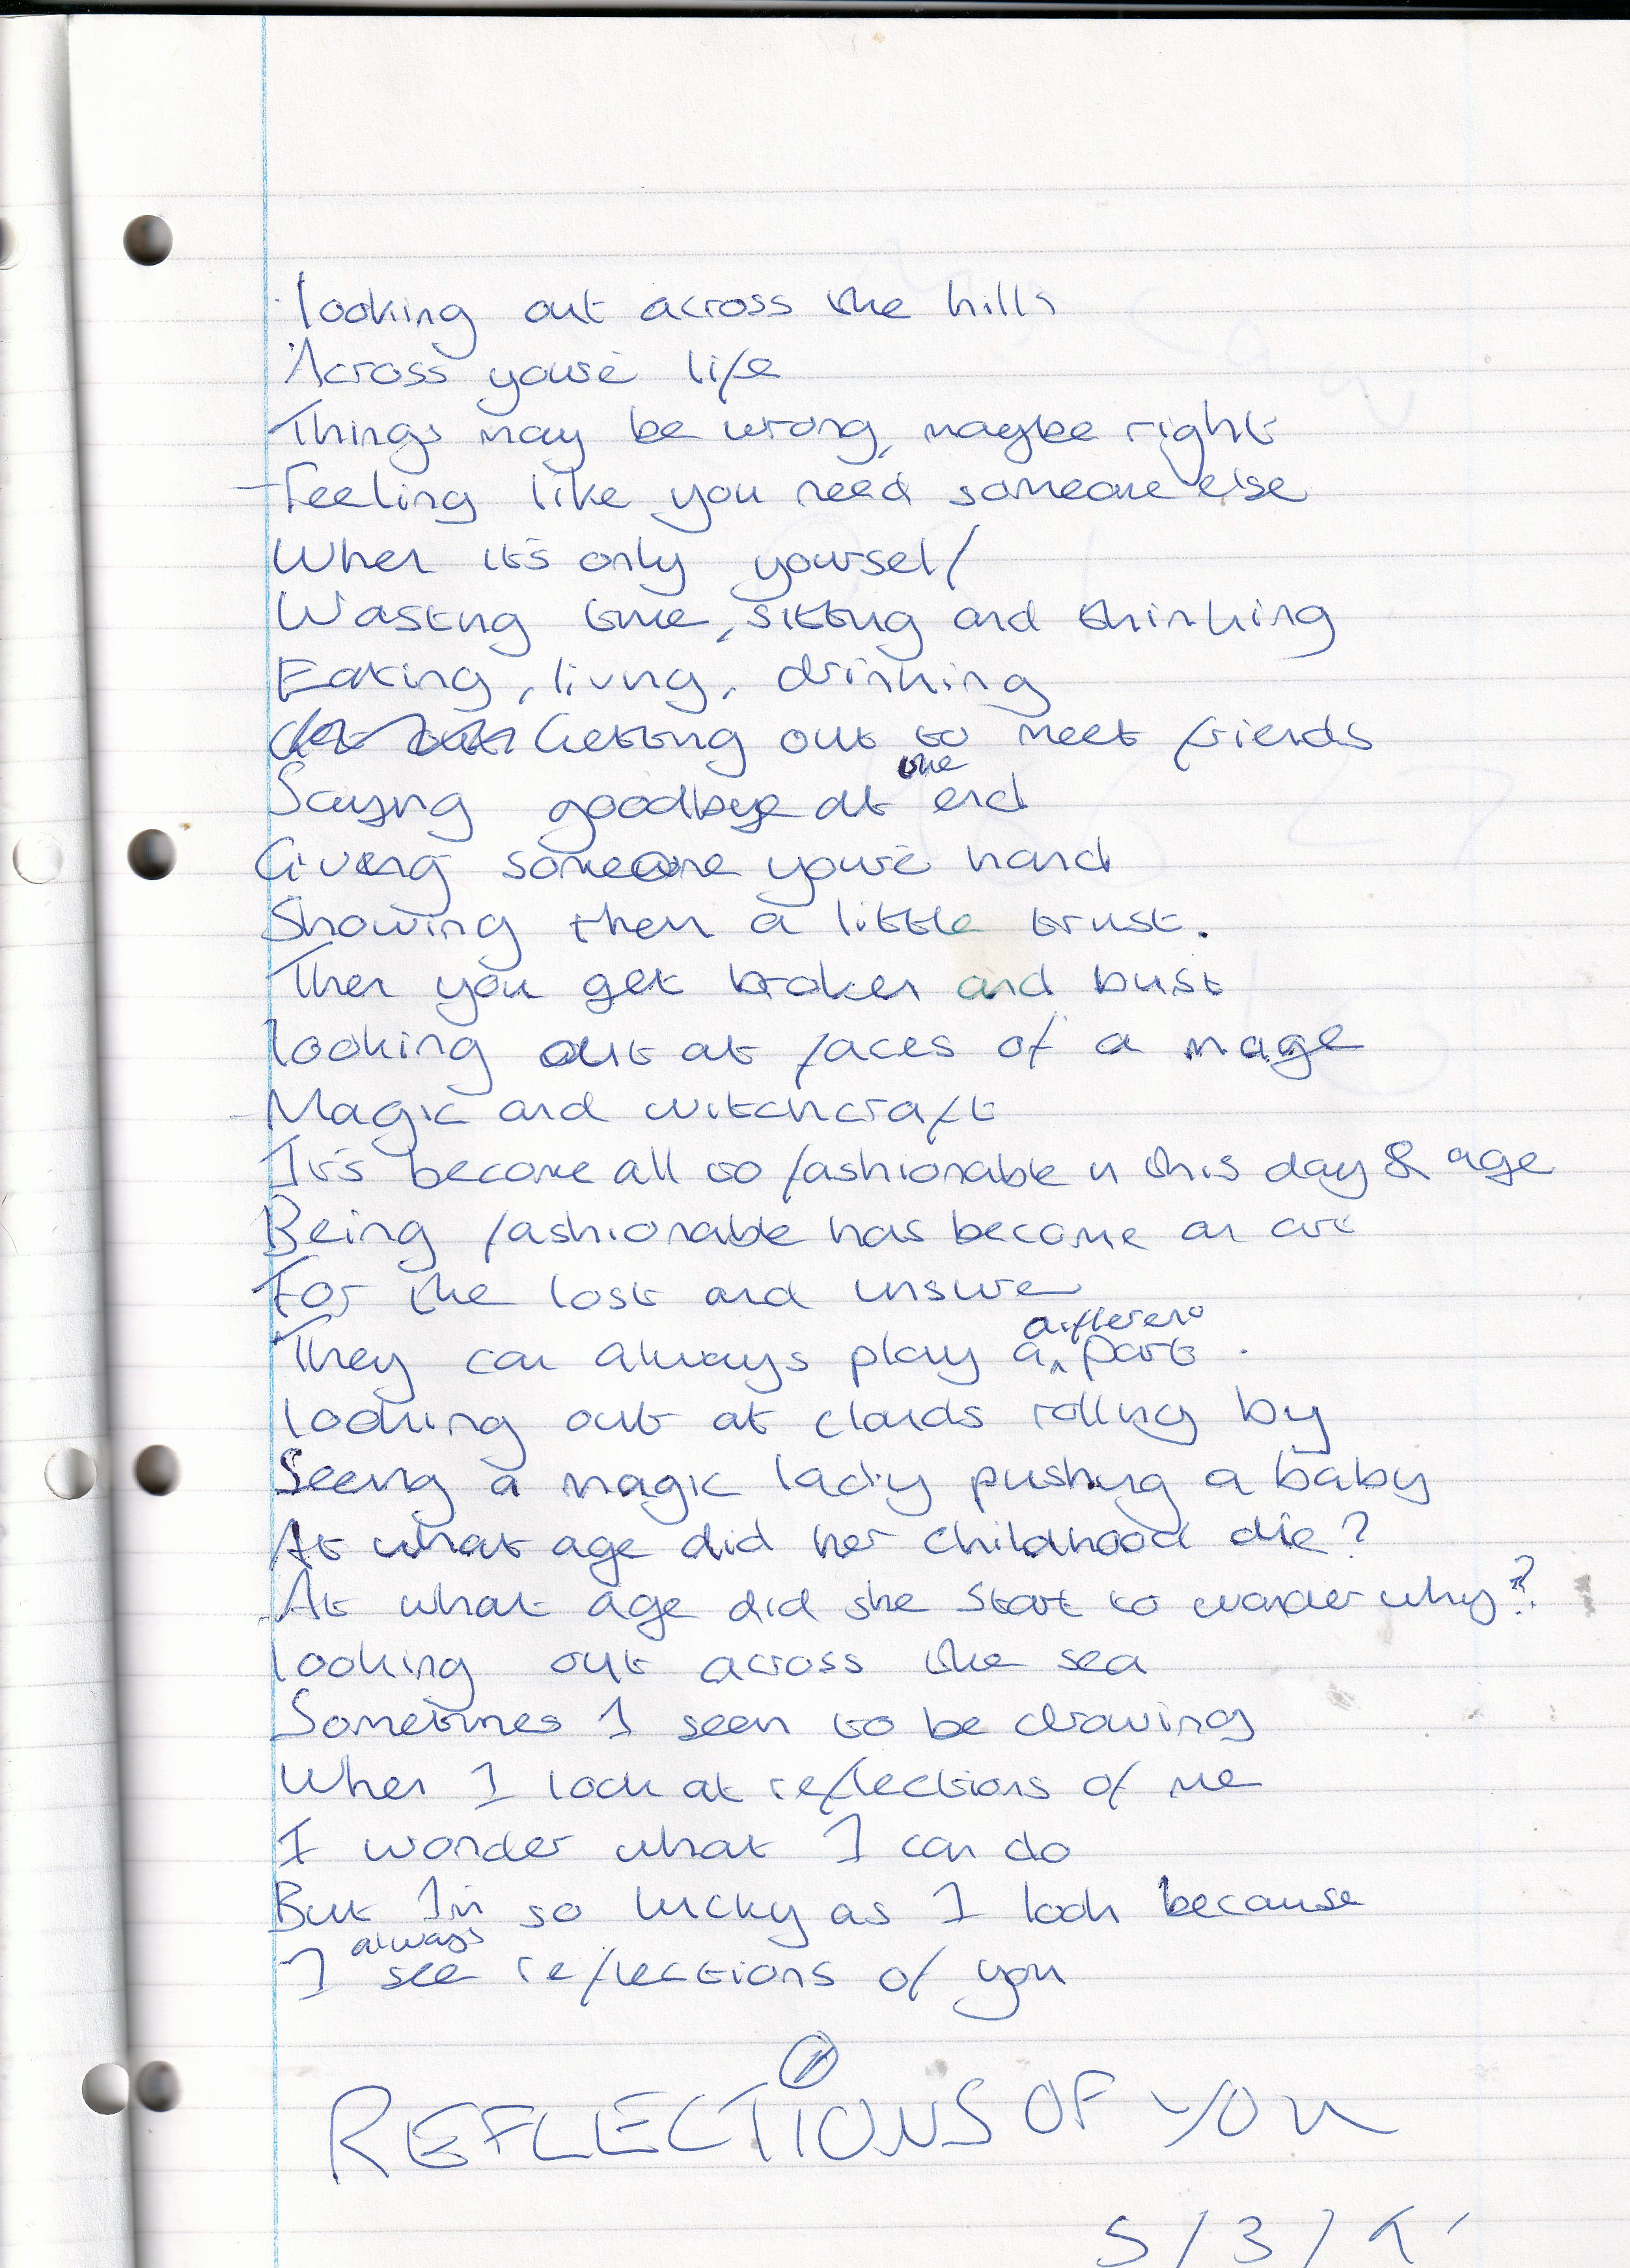 looking out across the hills
Across you're life
Things may be wrong, maybe right
Feeling like you need someone else
When it's only yourself
Wasting time, sitting and thinking
Eating, living, drinking
Getting out to meet friends
Saying goodbye at the end
Giving someone you're hand
Showing them a little trust.
Then you get broken and bust
looking out at faces of a mage
Magic and witchcraft
It's become all to fashionable in this day & age
Being fashionable has become an art
For the lost and unsure
They can always play a different part.
looking out at clouds rolling by
Seeing a magic lady pushing a baby
At what age did her childhood die?
At what age did she start to wonder why?
looking out across the sea
Sometimes I seem to be drowing
When I look at reflections of me
I wonder what I can do
But I'm so lucky as I look because
I always see reflections of you
REFLECTIONS OF YOU
5/3/